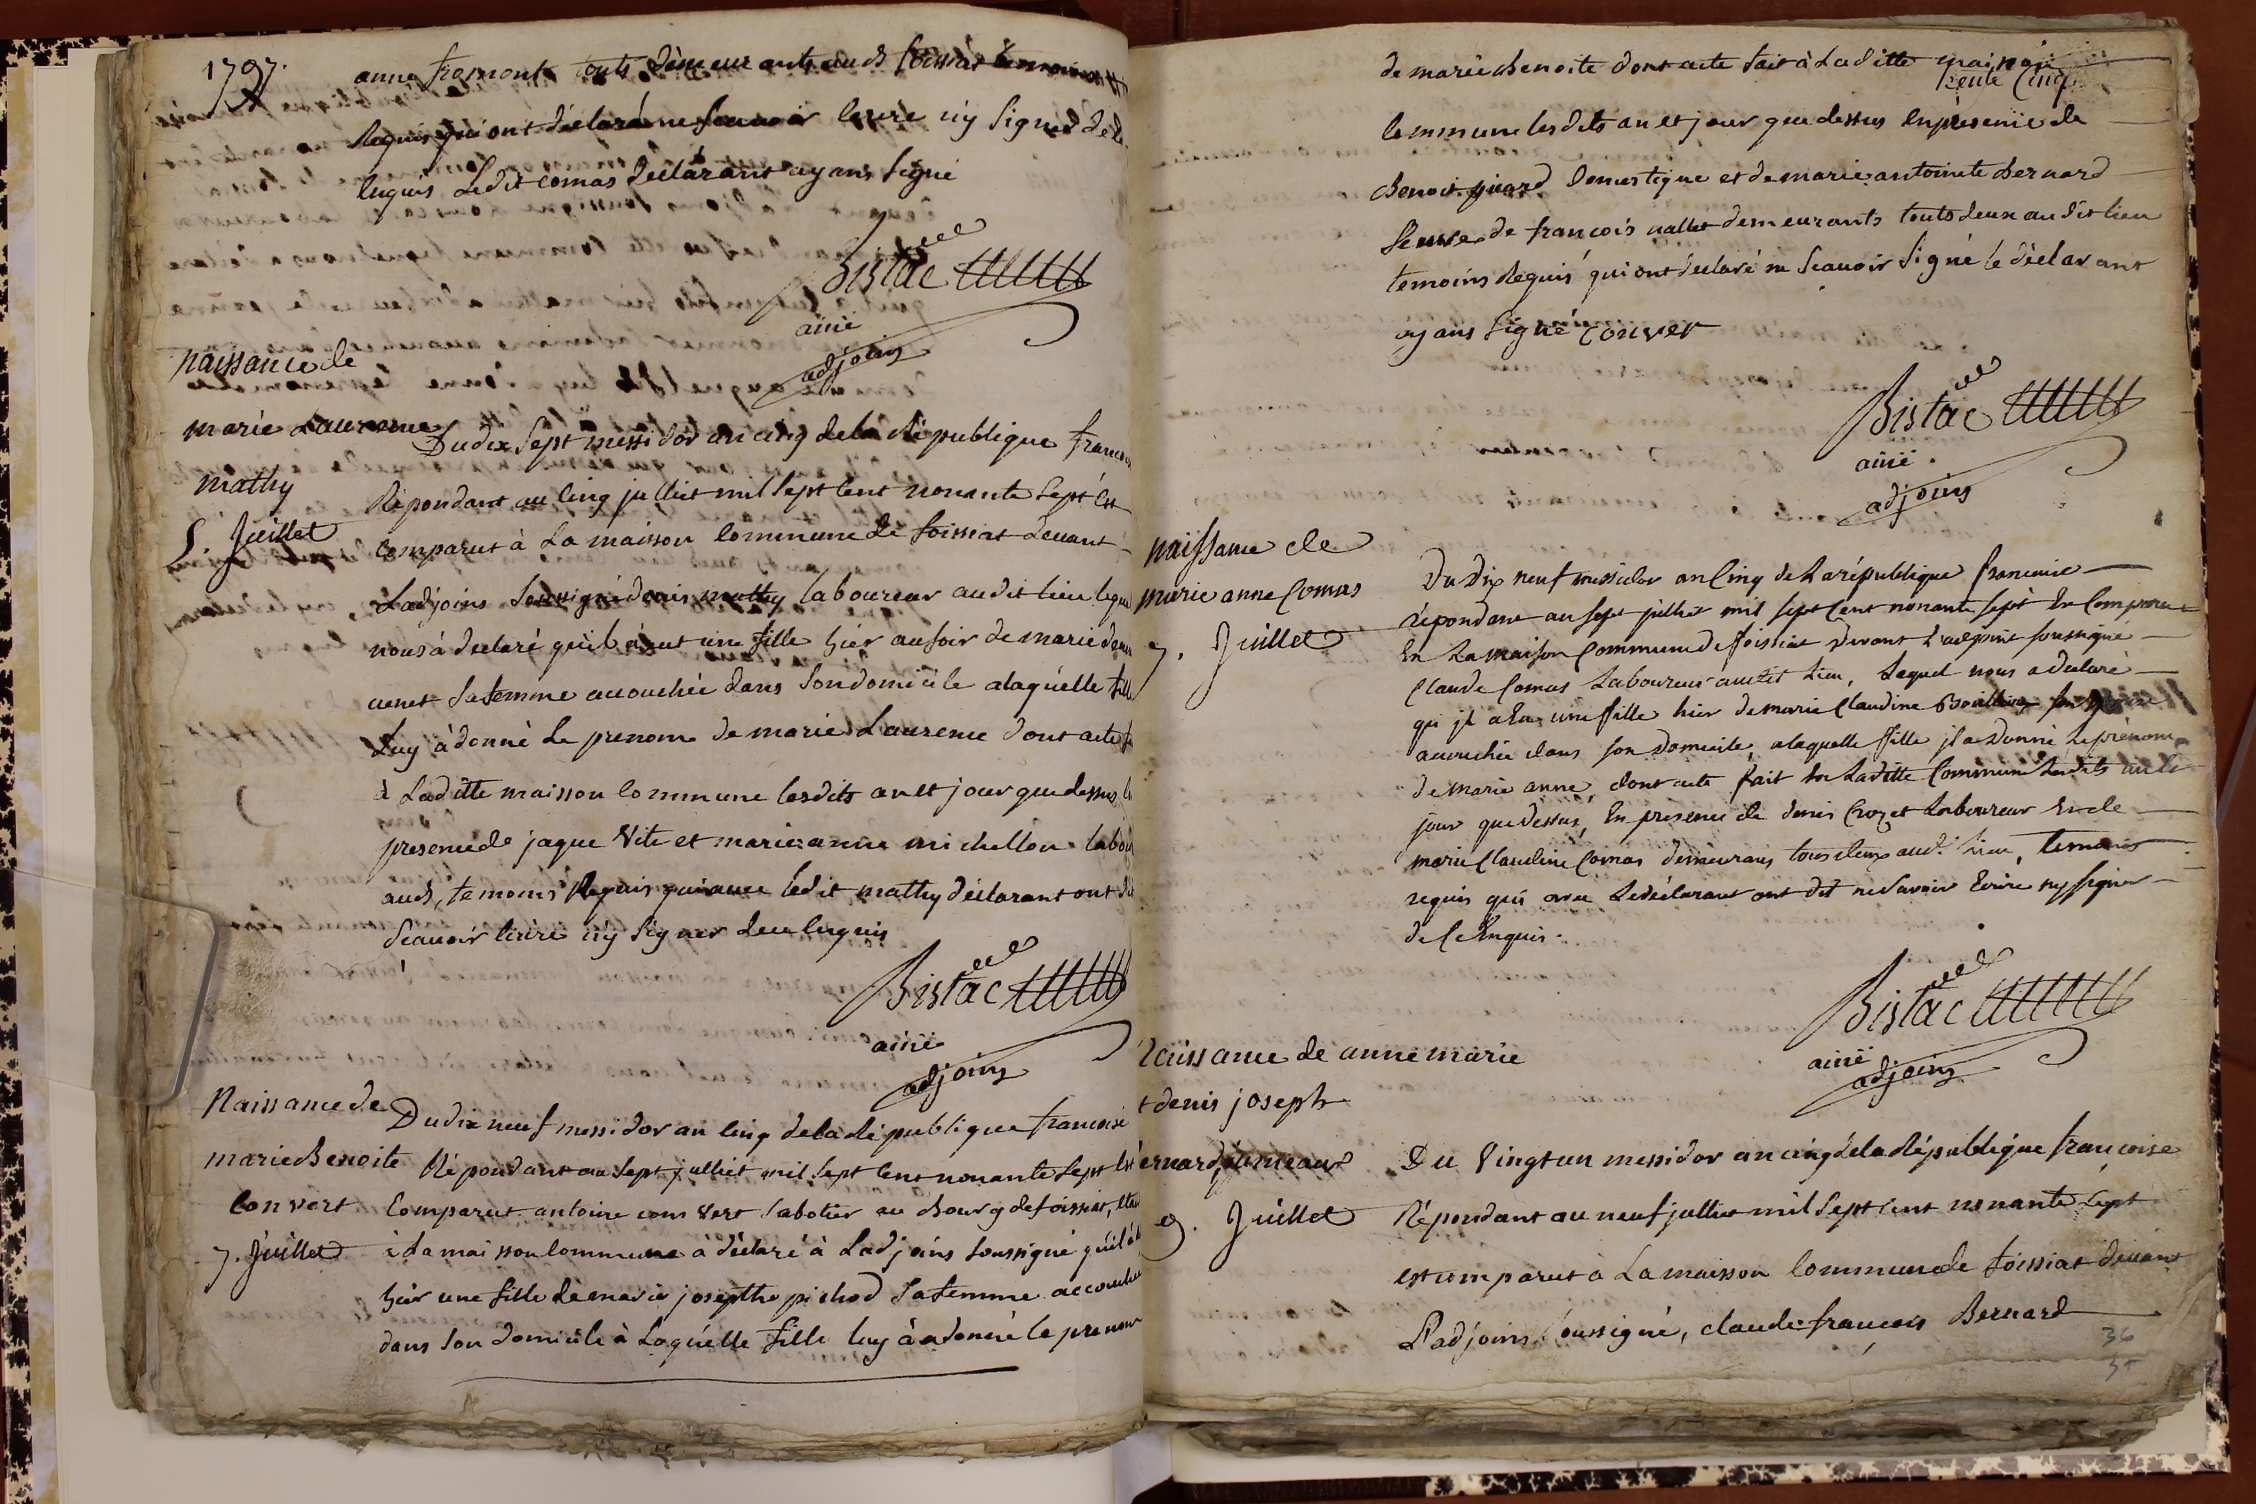 1797.
anne fromont touts demeurants aud foissiat temoins
Requis qui ont déclaré ne scavoir lecrire n'y signer de
lequis Ledit comas déclarant ayans signé
Bistac
ainé
adjoins
naissance de
marie Laurence
mathy
5. Juillet
Du dix sept messidor an cinq de la République francoi
Répondant au cinq julliet mil sept cent nonante sept Est
comparut à La maison commune de foissiat devant
Ladjoins soussigné denis mathy laboureur audit lieu leque
nous à declaré qu'il à eut une fille hier au soir de marie
sa femme accouchée dans son domicile alaquélle fille
Luy à donné Le prenom de marie Laurence dont acte
à Laditte maison commune lesdits an et jour que dessus
presence de jaque Vite et marie anne michellon labou
aud, temoins Requis qui avec ledit mathy déclarant ont
scavoir lecrire n'y signer de ce enquis
Bistac
ainé
adjoins
Naissance de
marie Benoite
Convert
7. Juillet
Du dix neuf messidor an cinq de la République francoise
Répondant au sept julliet mil sept cent nonante sept
Comparut antoine convert sabotier au bourg de foissiat,
à La maison commune à déclaré à Ladjoins soussigné qu'il à
hier une fille de marie josephe pichod sa femme accouchée
dans son domicile à Laquélle fille luy à donné le prenom
de marie Benoite dont acte fait à Laditte maison
commune lesdits an et jour que dessus en présence de
Benoit domestique et de marie antoinete Bernard
veuve de francois vallet demeurants touts deux audit lieu
temoins Requis qui ont declaré ne scavoir signé le déclarant
ayans signé Convert
Bistac
ainé
adjoins
naissance de
marie anne Comas
7. Juillet
Du Dix neuf messidor an Cinq de La république francoise
répondant au sept julliet mil sept Cent nonante sept Est Comparut
En La maison Commune de foissiat Devant L'adjoint soussigné
Claude Comas Laboureur audit Lieu, Lequel nous a déclaré
qu jl a Eu une fille hier de marie Claudine sa femme
accouchée dans son Domicile, alaquelle fille jl a Donné Le prénom
de marie anne, dont acte fait En Laditte Commune Lesdits an et
jour que Dessus, En présence de denis Crozet Laboureur Et de
marie Claudine Comas demeurans tous deux aud. Lieu, temoins
requis qui avec Ledéclarant ont dit ne savoir Ecrire ny signer
de Ce Enquis.
Bistac
ainé
adjoins
Naissance de anne marie
et denis joseph
Bernard jumeaux
9. Juillet
Du Vingt un messidor an cinq de la République francoise
Répondant au neuf julliet mil sept cent nonante sept
est comparut à La maison commune de foissiat devant
L'adjoins soussigné, claude francois Bernard
36
35